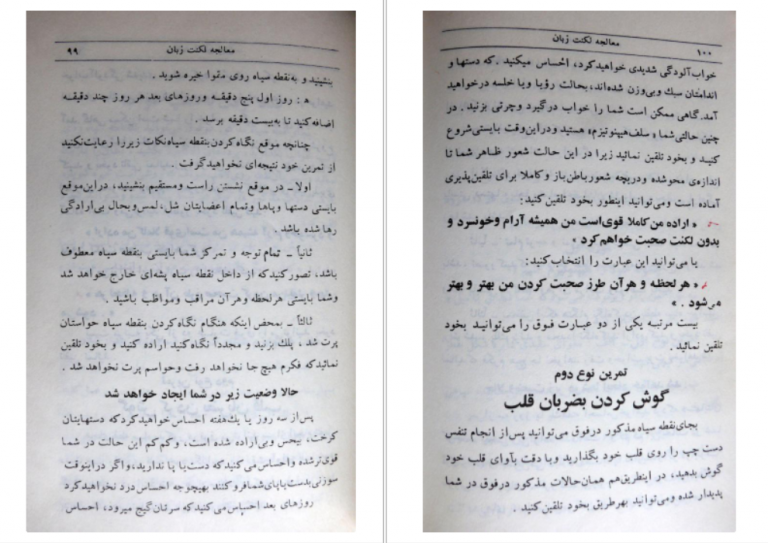 معالجه لکنت زبان ۹۹
بنشینید و به‌نقطه سیاه روی مقوا خیره شوید .
ه : روز اول پنج دقیقه و روزهای بعد هر روز چند دقیقه
اضافه کنید تا به‌بیست دقیقه برسد .
چنانچه موقع نگاه‌کردن بنقطه سیاه‌نکات زیر را رعایت‌نکنید
از تمرین خود نتیجه‌ای نخواهید گرفت .
اولا ـ در موقع نشستن راست و مستقیم بنشینید، در این‌موقع
بایستی دستها و پاها و تمام اعضایتان شل، لمس و بحال بی‌ارادگی
رها شده باشد .
ثانیاً ـ تمام توجه و تمرکز شما بایستی بنقطه سیاه معطوف
باشد، تصور کنید که از داخل نقطه سیاه پشه‌ای خارج خواهد شد
و شما بایستی هر لحظه و هر آن مراقب و مواظب باشید .
ثالثاً ـ بمحض اینکه هنگام نگاه‌کردن بنقطه سیاه حواستان
پرت شد ، پلک بزنید و مجدداً نگاه کنید اراده کنید و بخود تلقین
نمائید که فکرم هیچ جا نخواهد رفت و حواسم پرت نخواهد شد .
حالا وضعیت زیر در شما ایجاد خواهد شد
پس از سه روز یا یک‌هفته احساس خواهید کرد که دستهایتان
کرخت، بیحس و بی‌اراده شده است، و کم‌کم این حالت در شما
قوی‌تر شده و احساس می‌کنید که دست یا پا ندارید، و اگر در اینوقت
سوزنی بدست یا پای شما فرو کنند بهیچوجه احساس درد نخواهید کرد
روزهای بعد احساس می‌کنید که سرتان گیج میرود، احساس
۱۰۰ معالجه لکنت زبان
خواب‌آلودگی شدیدی خواهید کرد، احساس میکنید . که دستها و
اندامتان سبک و بی‌وزن شده‌اند، بحالت رؤیا و یا خلسه در خواهید
آمد. گاهی ممکن است شما را خواب در گیرد و چرتی بزنید . در
چنین حالتی شما « سلف‌هیپنوتیزم » هستید و در این وقت بایستی شروع
کنید و بخود تلقین نمائید زیرا در این حالت شعور ظاهر شما تا
اندازه‌ی محو شده و دریچه شعور باطن باز و کاملا برای تلقین‌پذیری
آماده است و می‌توانید اینطور بخود تلقین کنید:
« اراده من کاملا قوی است من همیشه آرام و خونسرد و
بدون لکنت صحبت خواهم کرد »
یا می‌توانید این عبارت را انتخاب کنید:
« هر لحظه و هر آن طرز صحبت کردن من بهتر و بهتر
می‌شود . »
بیست مرتبه یکی از دو عبارت فوق را می‌توانید بخود
تلقین نمائید .
تمرین نوع دوم
گوش کردن بضربان قلب
بجای نقطه سیاه مذکور در فوق می‌توانید پس از انجام تنفس
دست چپ را روی قلب خود بگذارید و با دقت بآوای قلب خود
گوش بدهید، در اینطریق هم همان حالات مذکور در فوق در شما
پدیدار شده و می‌توانید بهر طریق بخود تلقین کنید .